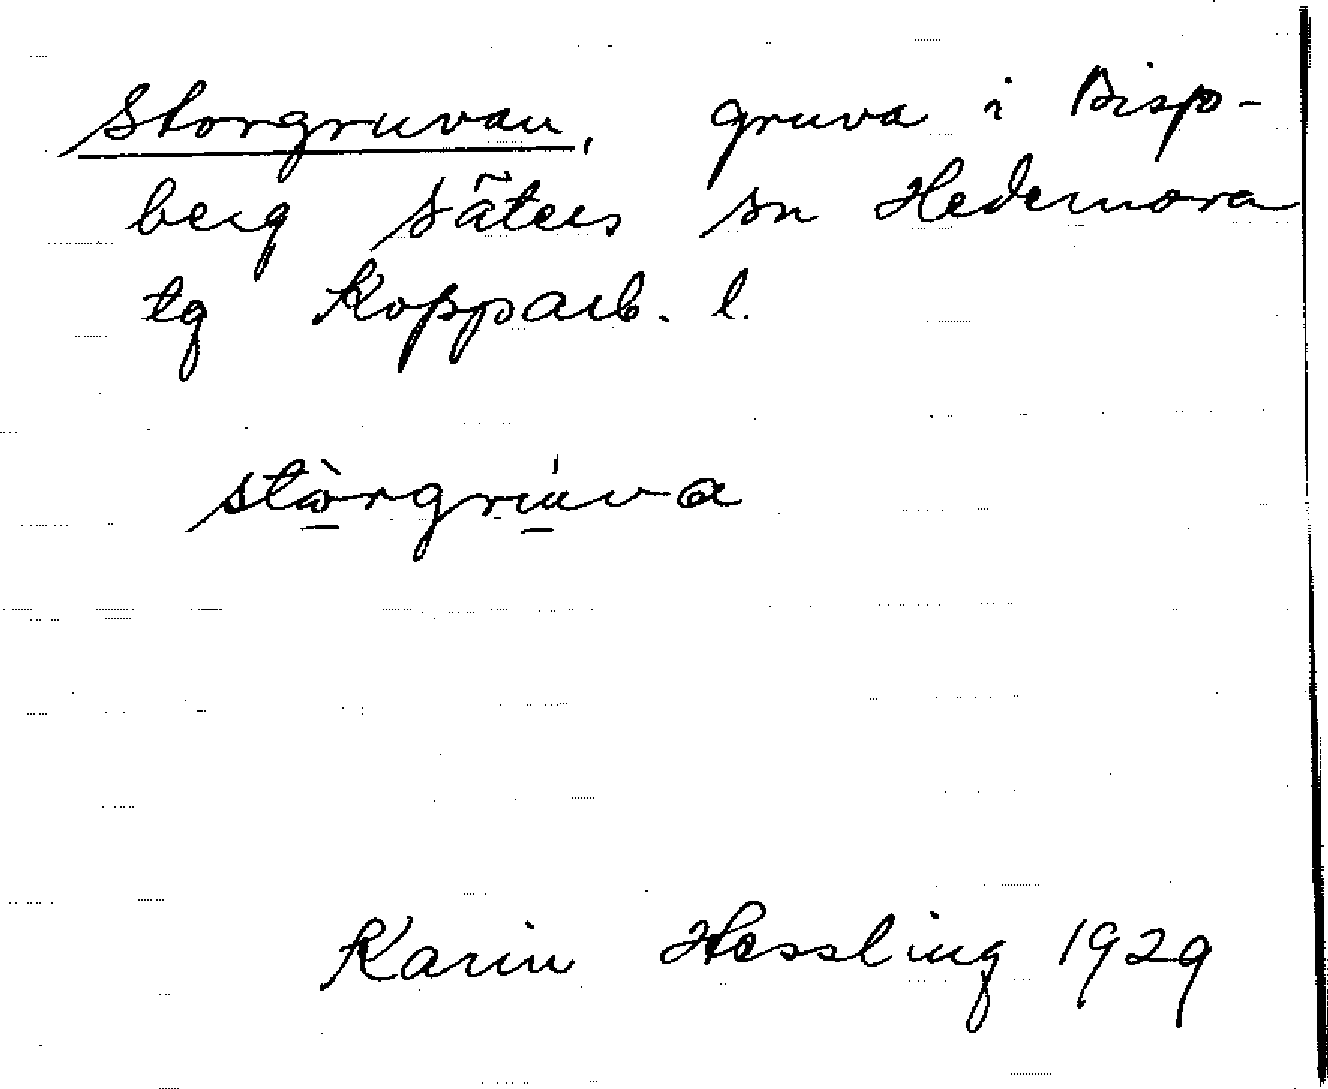 Storgruvan, gruva i Bisp-
berg Säters sn Hedemora
tg Kopparb. l.
stòrgrúva
Karin Hessling 1929